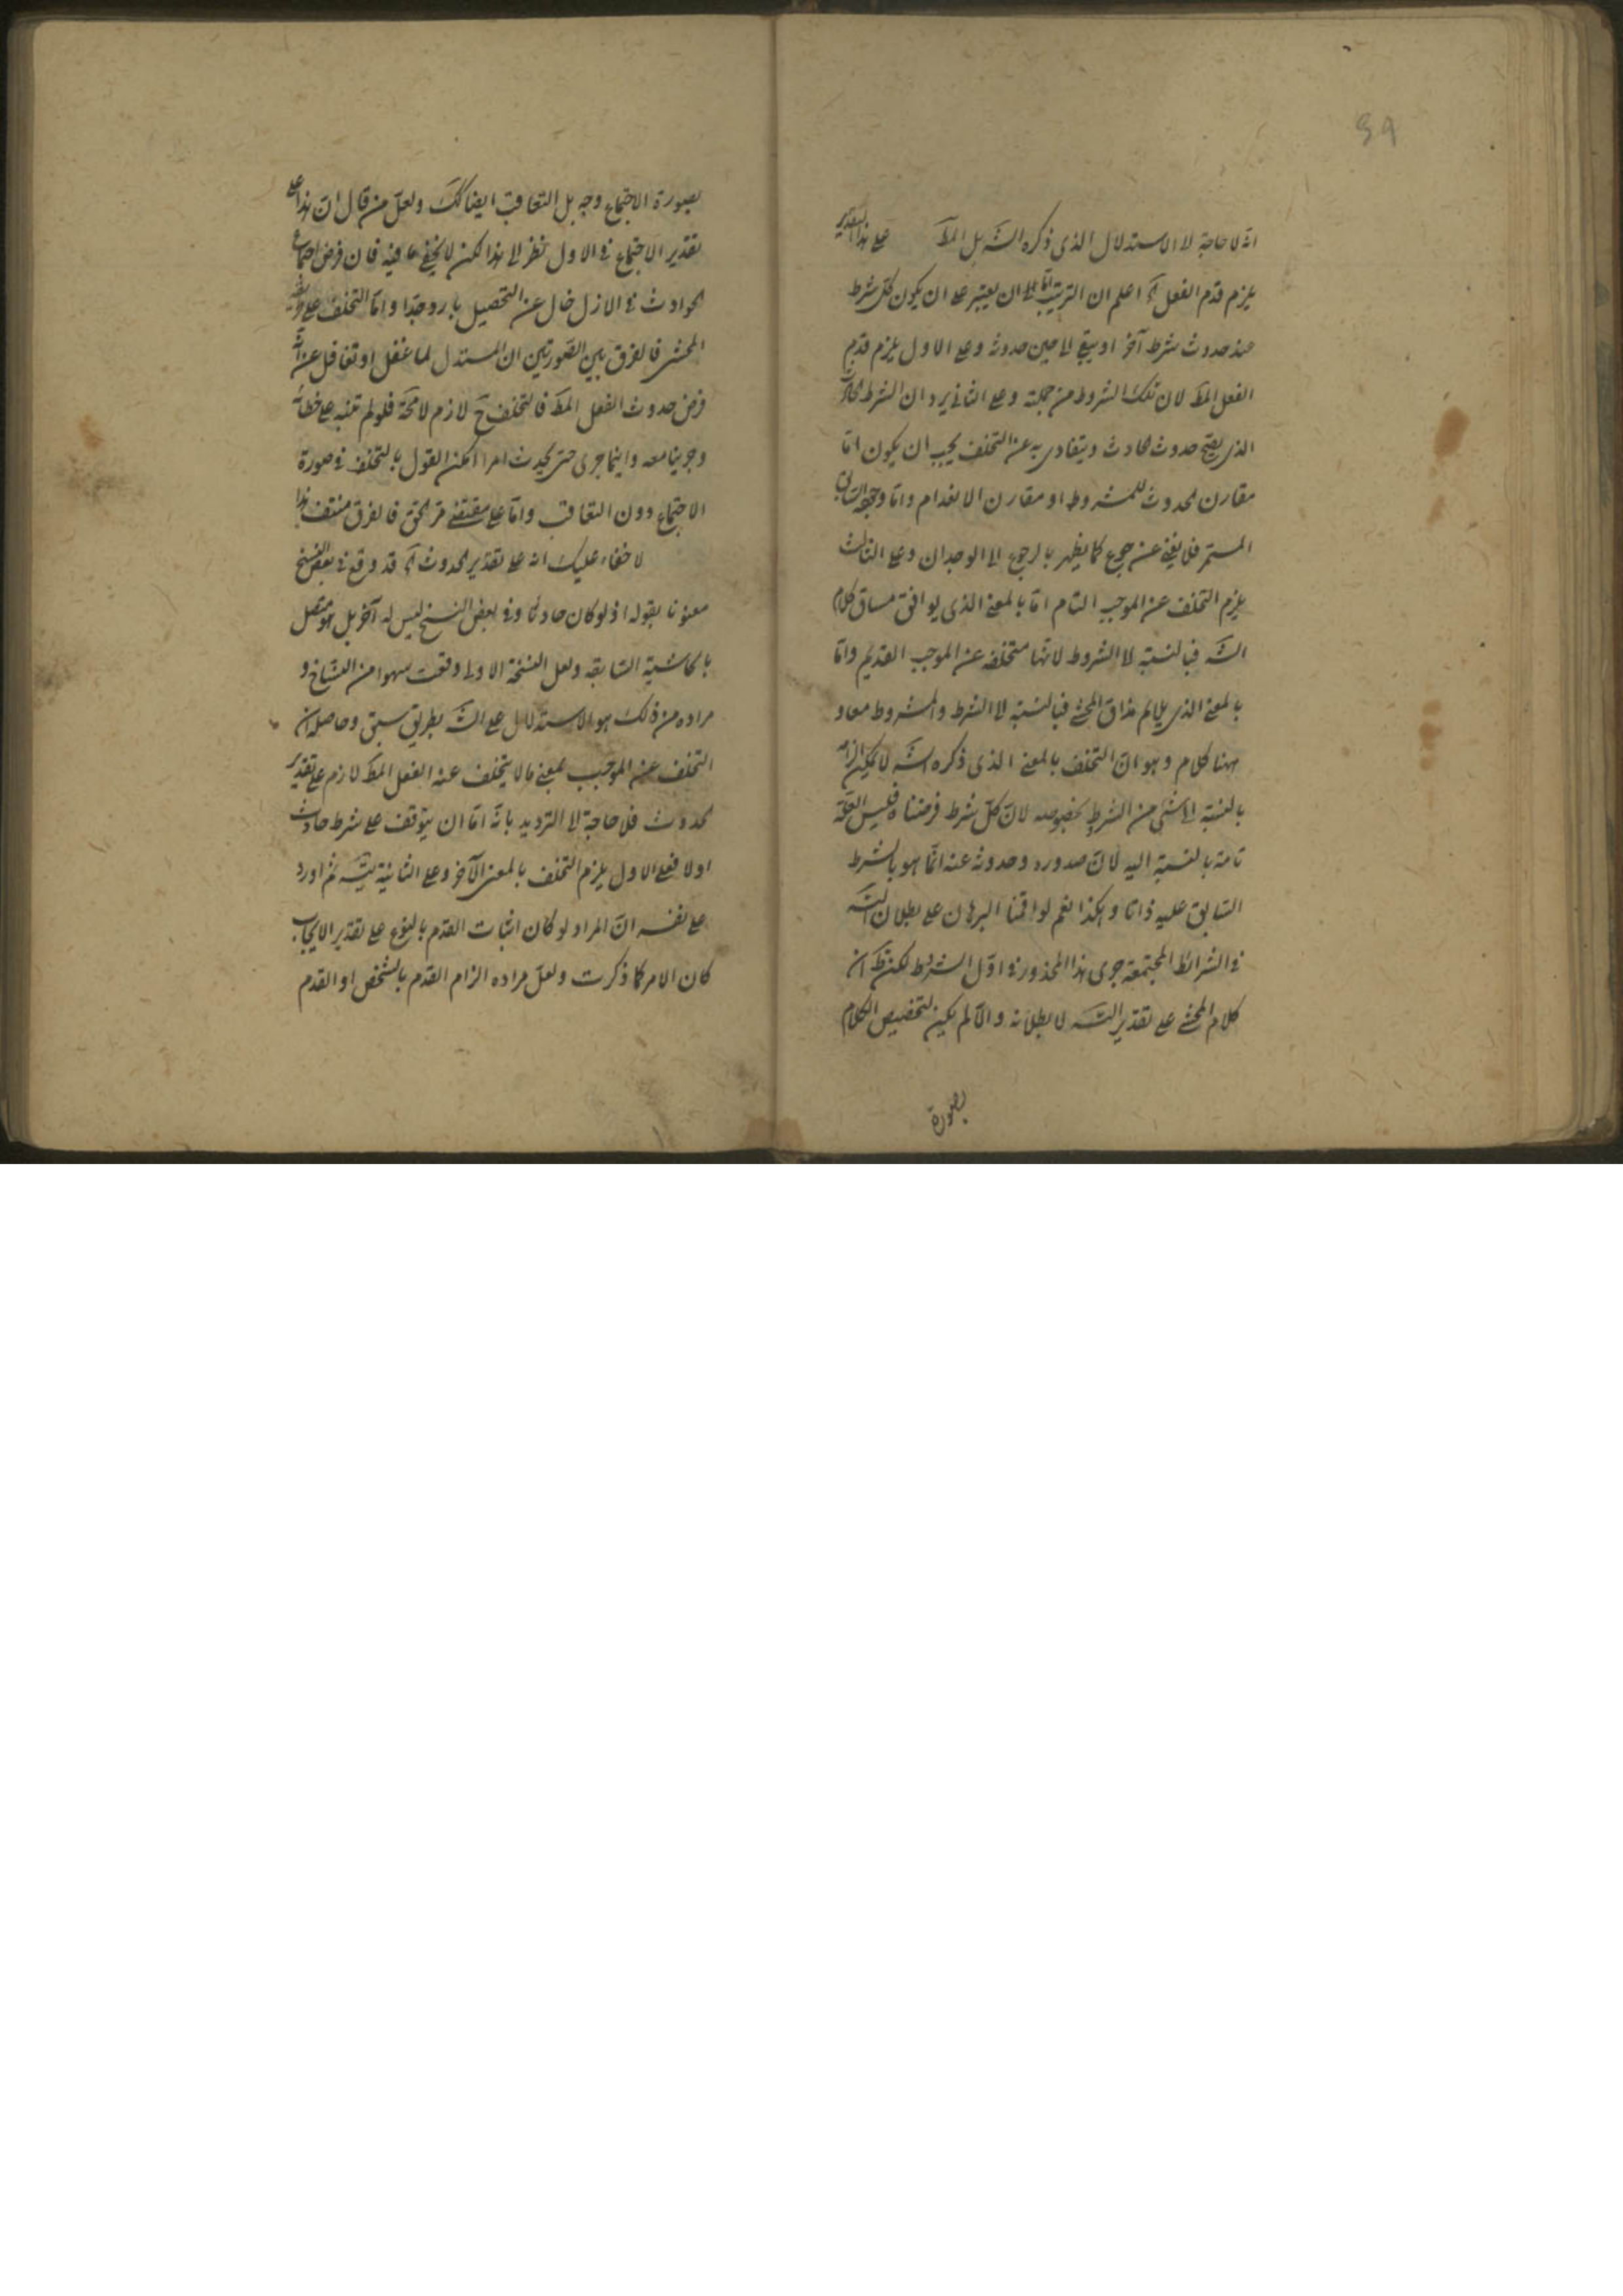 ٤٩
انه لا حاجة لا الاستدلال الذى ذكره الشه بل المط على هذا التقدير
يلزم قدم الفعل آه اعلم ان الترتيب اما ان يعتبر على ان يكون كل شرط
عند حدوث شرط آخر او يبقى الى حين حدوثه وعلى الاول يلزم قدم
الفعل المط لان تلك الشروط من جملته وعلى الثانى يرد ان الشرط
الذى يصح حدوث الحادث ويتفادى به عن التخلف يجب ان يكون اما
مقارن الحدوث للمشروط او مقارن الانعدام واما وجود السابق
المستمر فلا يغنى عن جوع كما يظهر بالرجوع الى الوجدان وعلى الثالث
يلزم التخلف عن الموجب التام اما بالمعنى الذى يوافق مساق كلام
الشه فبالنسبة لا الشروط لانها متخلفة عن الموجب القديم واما
بالمعنى الذى يلايم مذاق المحشى فبالنسبة لا الشرط والمشروط معا و
ههنا كلام وهو ان التخلف بالمعنى الذى ذكره الشه لا يمكن الزامه
بالنسبة الى شىء من الشرط بخصوصه لان كل شرط فرضناه فليس العلة
تامة بالنسبة اليه لان صدوره وحدوثه عنه انما هو بالشرط
السابق عليه ذاتا وهكذا نعم لو اقمنا البرهان على بطلان التسه
فى الشرائط المجتمعة جرى هذا المحذور فى اول الشروط لكن نظ ان
كلام المحشى على تقدير التسه لا بطلانه والا لم يكن لتخصيص الكلام
بصورة
بصورة الاجتماع وجه بل التعاقب ايضا كك ولعل من قال ان هذا على
تقدير الاجتماع فى الاول نظر الى هذا لكن لا يخفى ما فيه فان فرض اجتماع
الحوادث فى الازل خال عن التحصيل بارد جدا واما التخلف على
المحشى فالفرق بين الصورتين ان المستدل لما غفل او تغافل عن انه
فرض حدوث الفعل المط فالتخلف ح لازم لا محة فلو لم تنبه على خطائه
وجرينا معه واينما جرى حتى يحدث امرا امكن القول بالتخلف فى صورة
الاجتماع دون التعاقب واما على مقتضى مر الحق فالفرق منتف هذا
لا خفاء عليك انه على تقدير الحدوث آه قد وقع فى بعض النسخ
معنونا بقوله اذ لو كان حادثا وفى بعض النسخ ليس له آخر بل هو متصل
بالحاشية السابقه ولعل النسخة الاولى وقعت سهوا من النساخ و
مراده من ذلك هو الاستدلال على الشه بطريق سبق وحاصله ان
التخلف عن الموجب بمعنى ما لا يتخلف عنه الفعل المط لازم على تقدير
الحدوث فلا حاجة لا الترديد بانه اما ان يتوقف على شرط حادث
اولا فعلى الاول يلزم التخلف بالمعنى الآخر وعلى الثانية يتسه ثم اورد
على نفسه ان المراد لو كان اثبات القدم بالنوع على تقدير الايجاب
كان الامر كما ذكرت ولعل مراده الزام القدم بالشخص او القدم